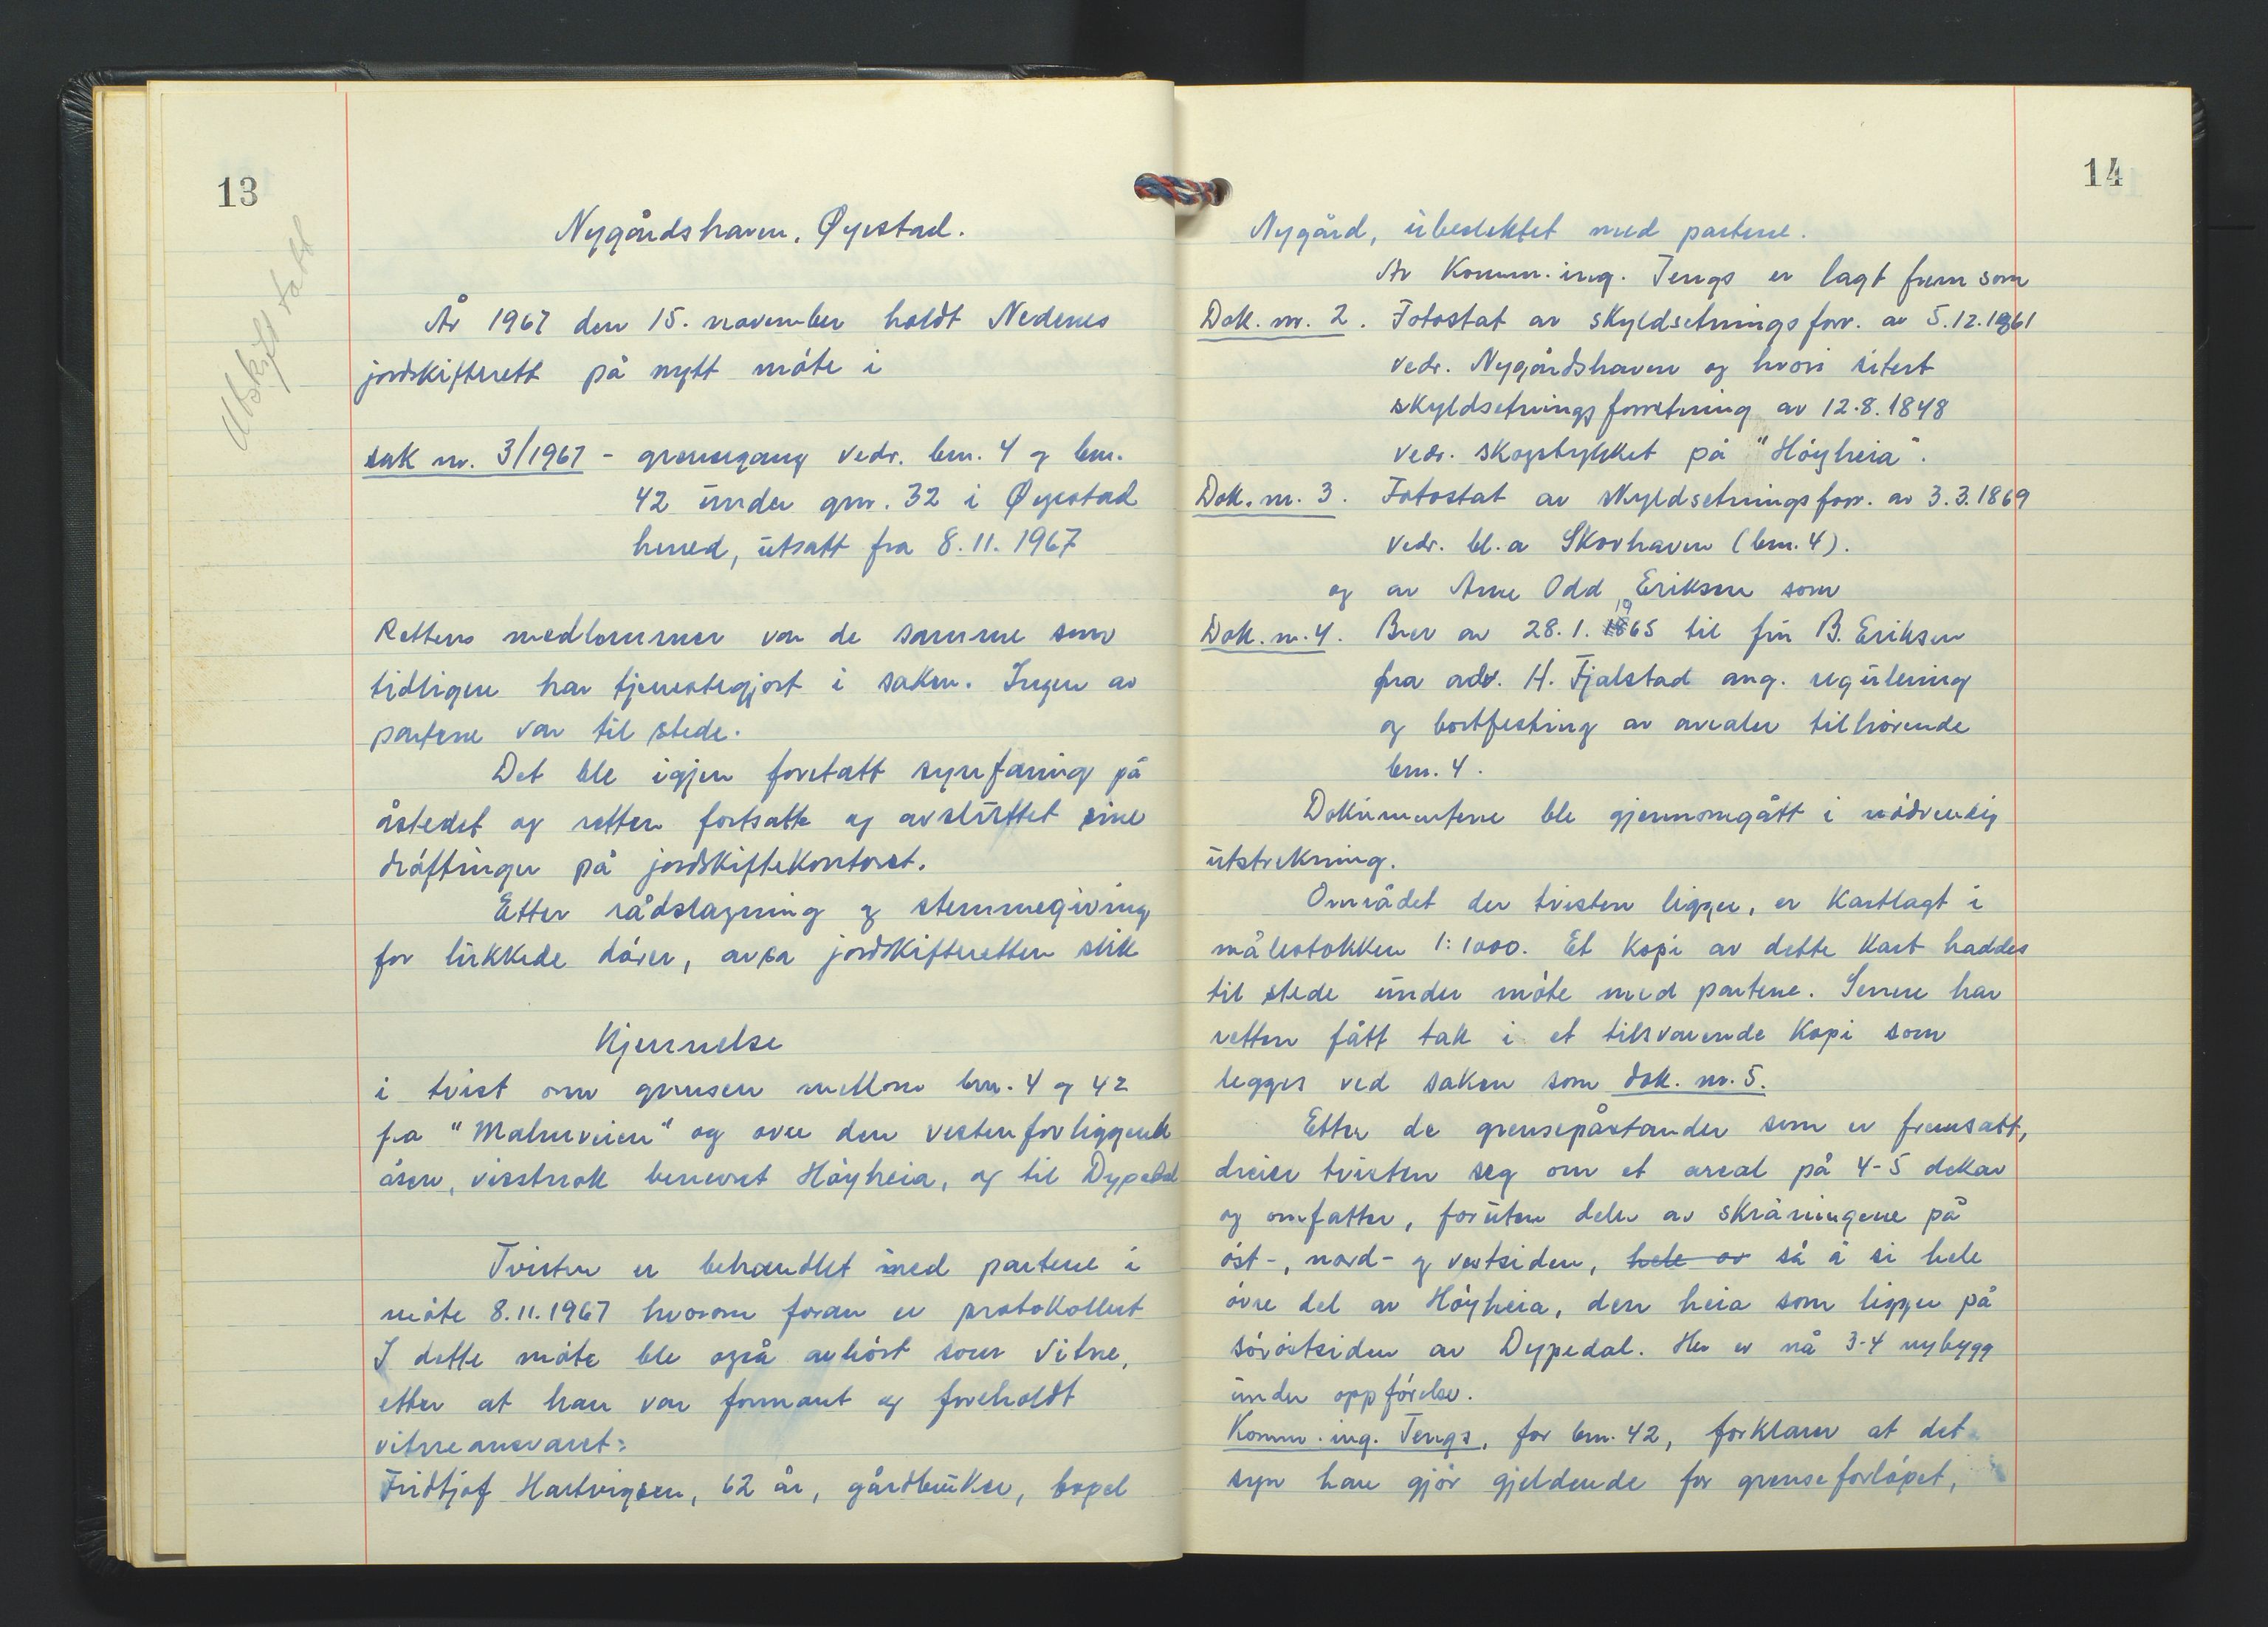 13
Avskrift tatt
Nygårdshaven, Øyestad.
År 1967 den 15. november holdt Nedenes
jordskifterett på nytt møte i
sak nr. 3/1967 - grensegang vedr. bnr. 4 og bnr.
42 under gnr. 32 i Øyestad
herred, utsatt fra 8.11.1967
Rettens medlemmer var de samme som
tidligere har tjenestegjort i saken. Ingen av
partene var til stede.
Det ble igjen foretatt synfaring på
åstedet og retten fortsatte og avsluttet sine
drøftinger på jordskiftekontoret.
Etter rådslagning og stemmegiving
for lukkede dører, avsa jordskifteretten slik
Kjennelse
i tvist om grensen mellom bnr. 4 og 42
fra "Malmveien" og over den vestenforliggende
åsen, visstnok benevnt Höyheia, og til Dypedal
Tvisten er behandlet med partene i
møte 8.11.1967 hvorom foran er protokollert
I dette møte ble også avhørt som vitne,
etter at han var formant og foreholdt
vitneansvaret:
Fridtjof Hartvigsen, 62 år, gårdbruker, bopel
14
Nygård, ubeslektet med partene.
Av Komm.ing. Tengs er lagt frem som
Dok. nr. 2. Fotostat av skyldsetningsforr. av 5.12.1861
vedr. Nygårdshaven og hvori sitert
skyldsetningsforretning av 12.8.1848
vedr. skogstykket på "Höyheia".
Dok. nr. 3. Fotostat av skyldsetningsforr. av 3.3.1869
vedr. bl.a Skovhaven (bnr. 4).
og av Arne Odd Eriksen som
Dok. nr. 4. Brev av 28.1.1965 til fru B. Eriksen
fra adv. H. Fjalstad ang. regulering
og bortfesting av arealer tilhørende
bnr. 4.
Dokumentene ble gjennomgått i nødvendig
utstrekning.
Området der tvisten ligger, er kartlagt i
målestokken 1:1000. Et kopi av dette kart haddes
til stede under møte med partene. Senere har
retten fått tak i et tilsvarende kopi som
legges ved saken som dok. nr. 5.
Etter de grensepåstander som er fremsatt,
dreier tvisten seg om et areal på 4-5 dekar
og omfatter, foruten deler av skråningene på
øst-, nord- og vestsiden, hele av så å si hele
øvre del av Höyheia, den heia som ligger på
sørøstsiden av Dypedal. Her er nå 3-4 nybygg
under oppførelse.
Komm.ing. Tengs, for bnr. 42, forklarer at det
syn han gjør gjeldende for grenseforløpet,